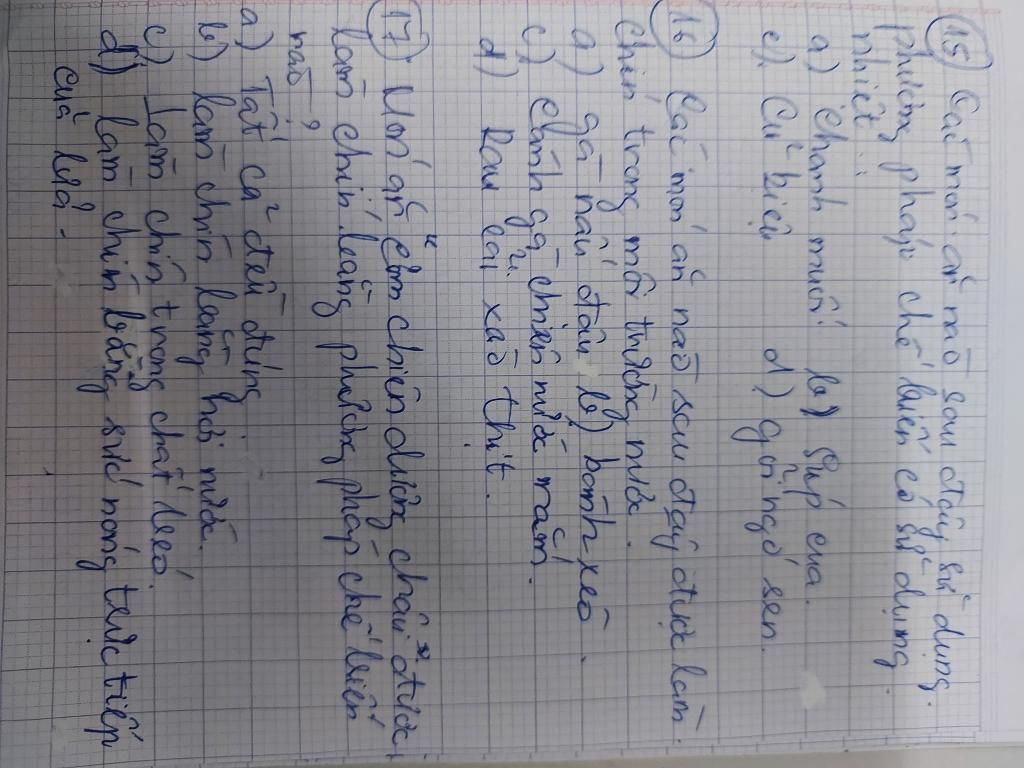 (15) Các món ăn nào sau đây sử dụng
phương pháp chế biến có sử dụng
nhiệt:
a) Chanh muối. b) Súp cua.
c) Củ kiệu d) gỏi ngó sen.
(16) Các món ăn nào sau đây được làm
chín trong môi trường nước.
a) gà nấu đậu b) bánh xèo.
c) Cánh gà chiên nước mắm.
d) Rau cải xào thịt.
(17) Món ăn "Cơm chiên dương châu" được
làm chính bằng phương pháp chế biến
nào?
a) Tất cả đều đúng
b) làm chín bằng hơi nước.
c) Làm chín trong chất béo.
d) làm chín bằng sức nóng trực tiếp
của lửa.